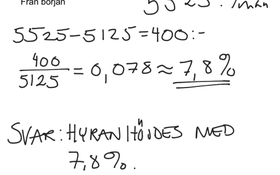 Från början
5525-5125=400:-
400/5125 = 0,078 ≈ 7,8%
SVAR: HYRAN HÖJDES MED
7,8%.